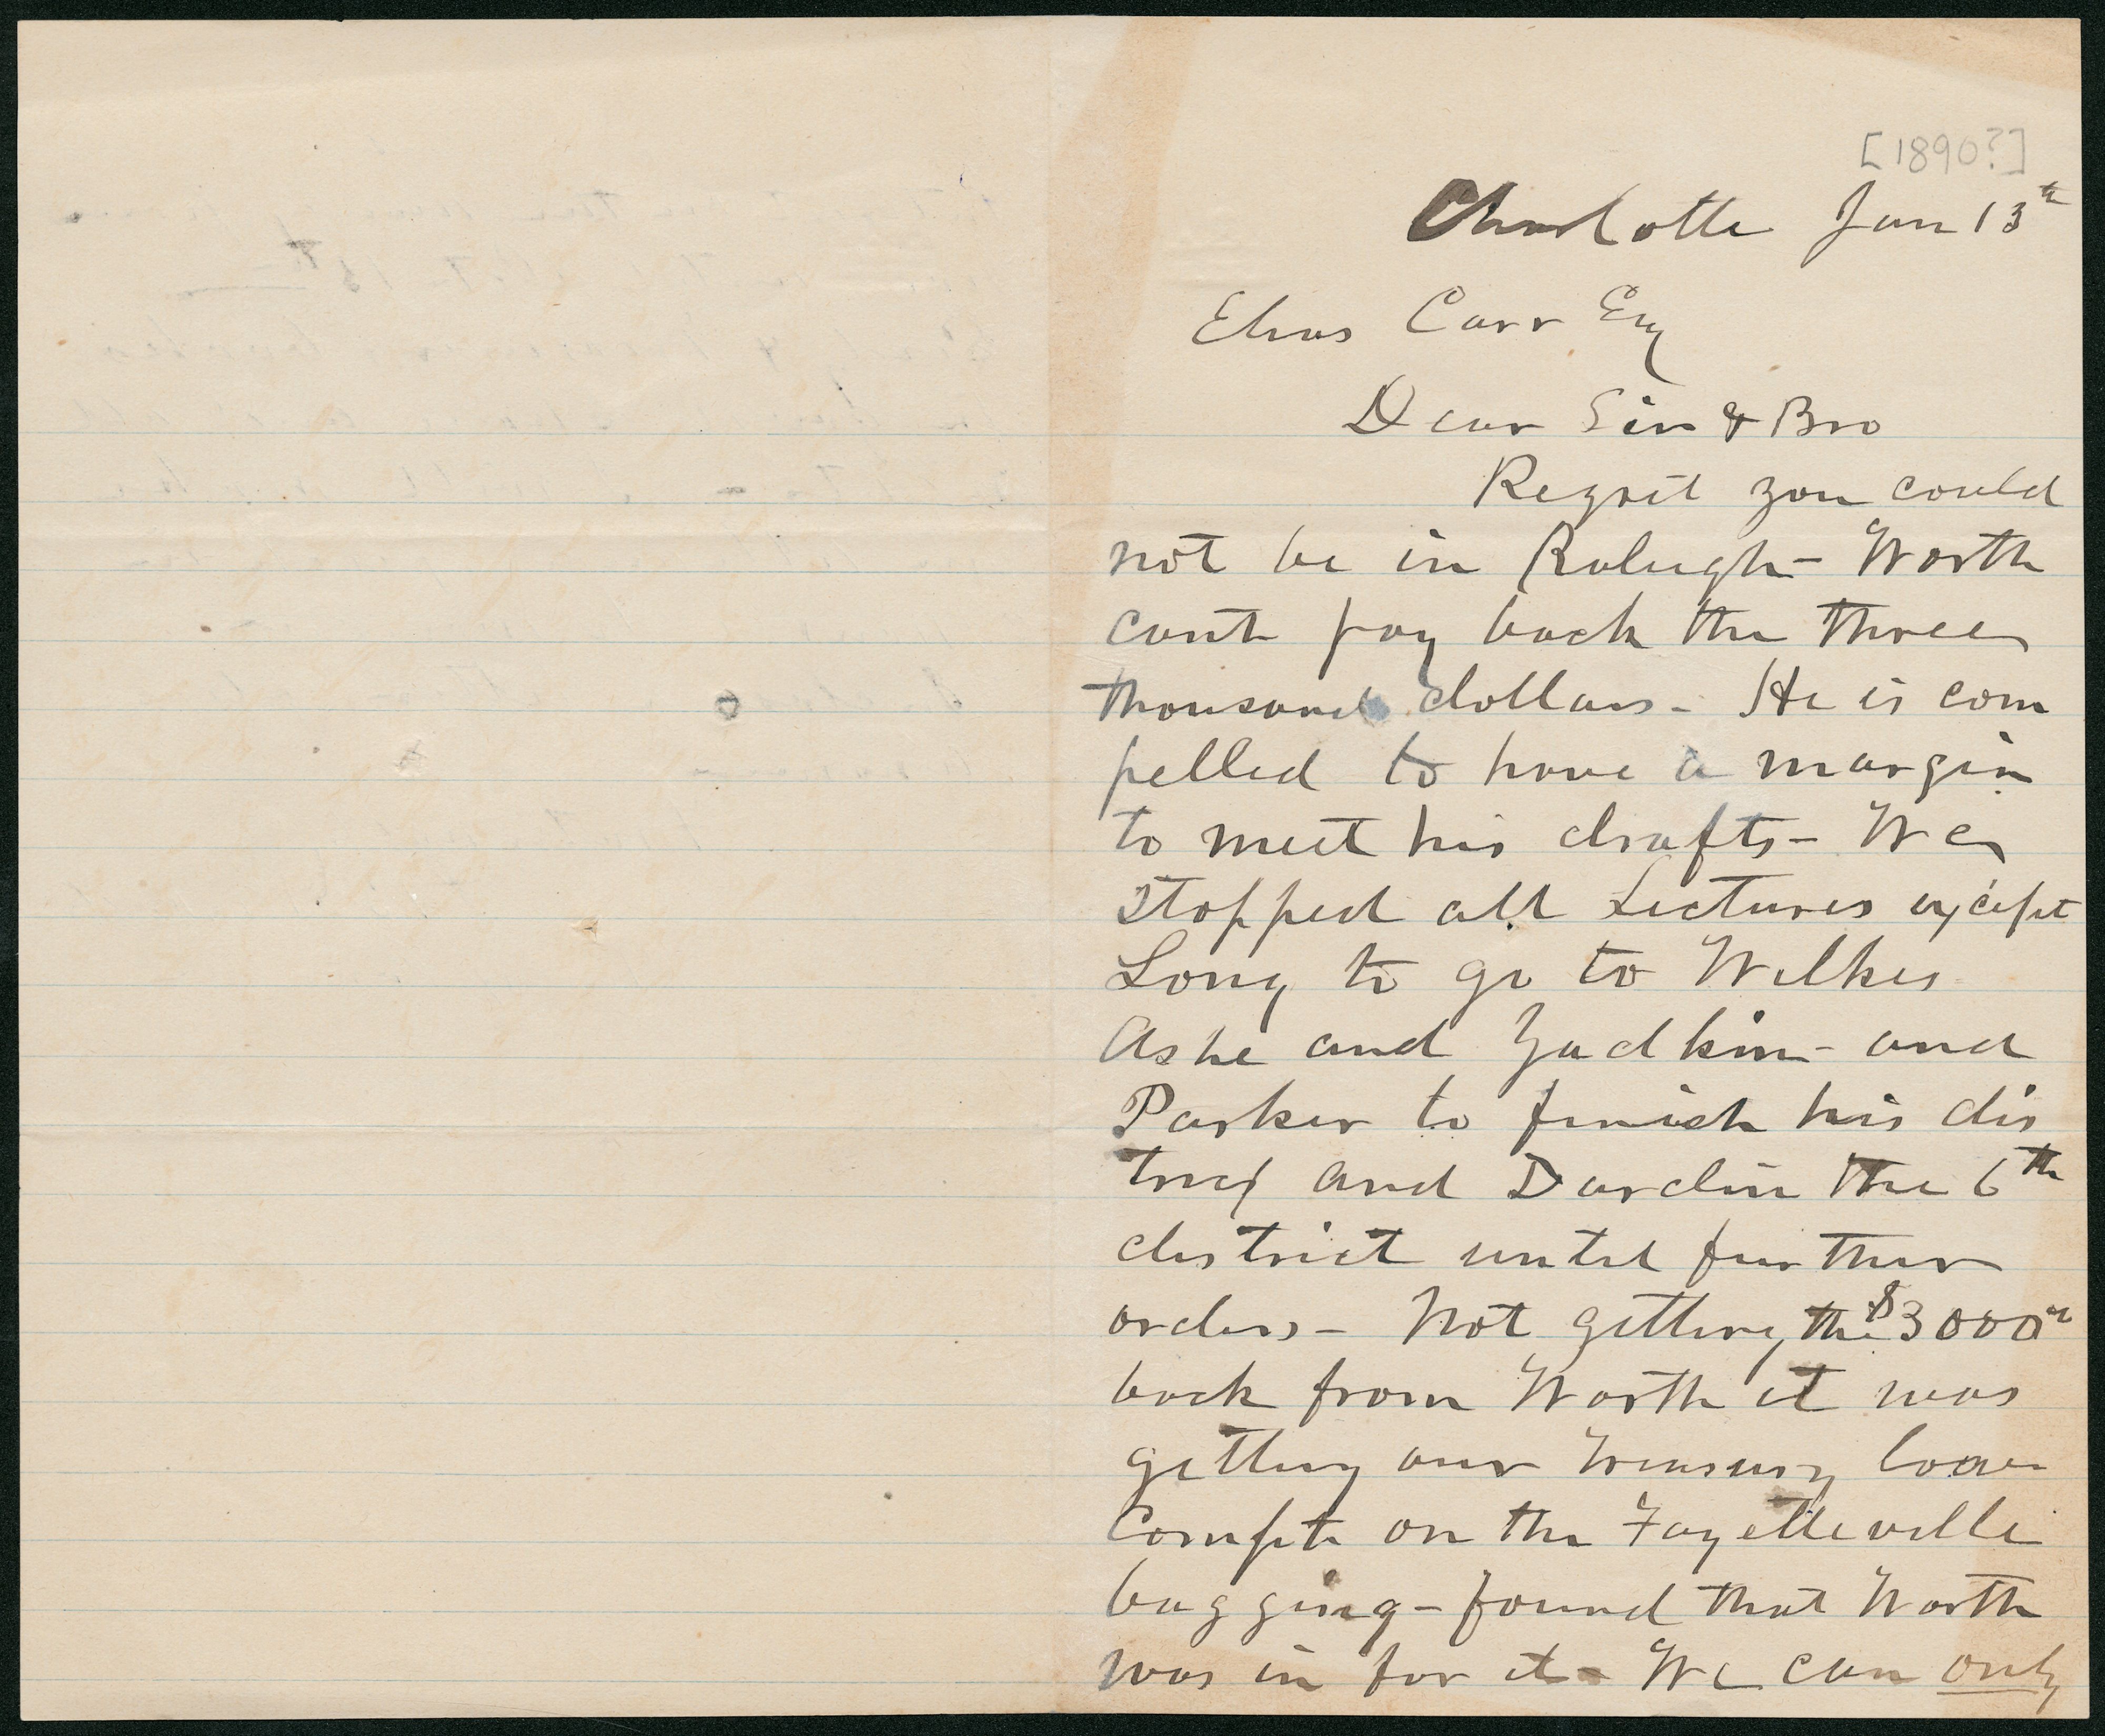 [1890?]
Charlotte Jan 13th
Elias Carr Esq
Dear Sir & Bro
Regret you could
not be in Raleigh - Worth
cant pay back the three
thousand dollars - He is com
pelled to have a margin
to meet his drafts - We
stopped all Lectures except
Long to go to Wilkes
Ashe and Yadkin - and
Parker to finish his dis
trict and Durdin the 6th
district until further
orders - Not getting the $3000
back from Worth it was
getting our Treasury low
on the Fayetteville
bagging - found that Worth
was in for it - We can only